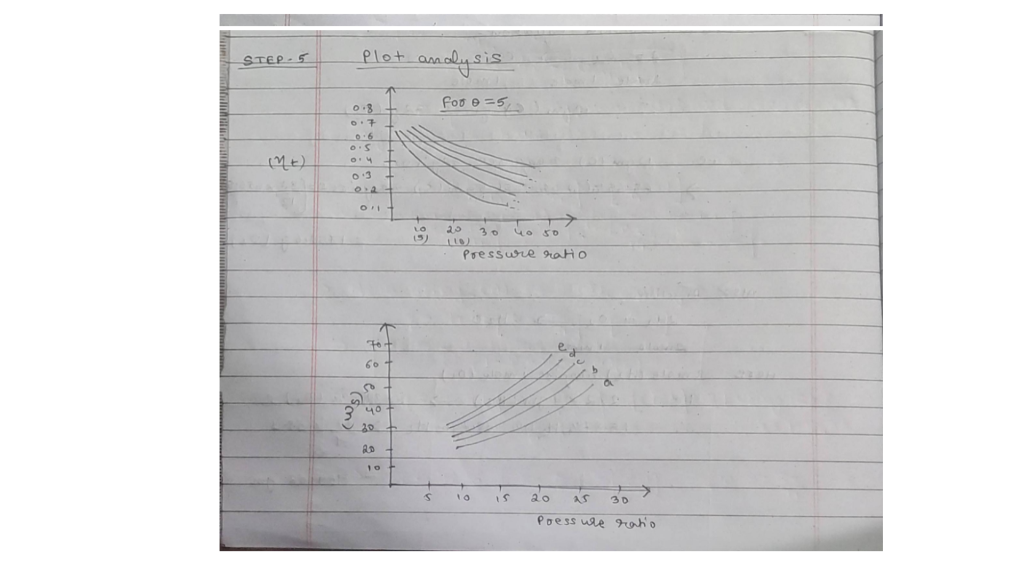 STEP-5 Plot analysis
For θ = 5
0.8
0.7
0.6
0.5
(ηt) 0.4
0.3
0.2
0.1
10 20 30 40 50
(5) (10)
Pressure ratio
70
60
50
40
30
20
10
e d c b a
5 10 15 20 25 30
Pressure ratio